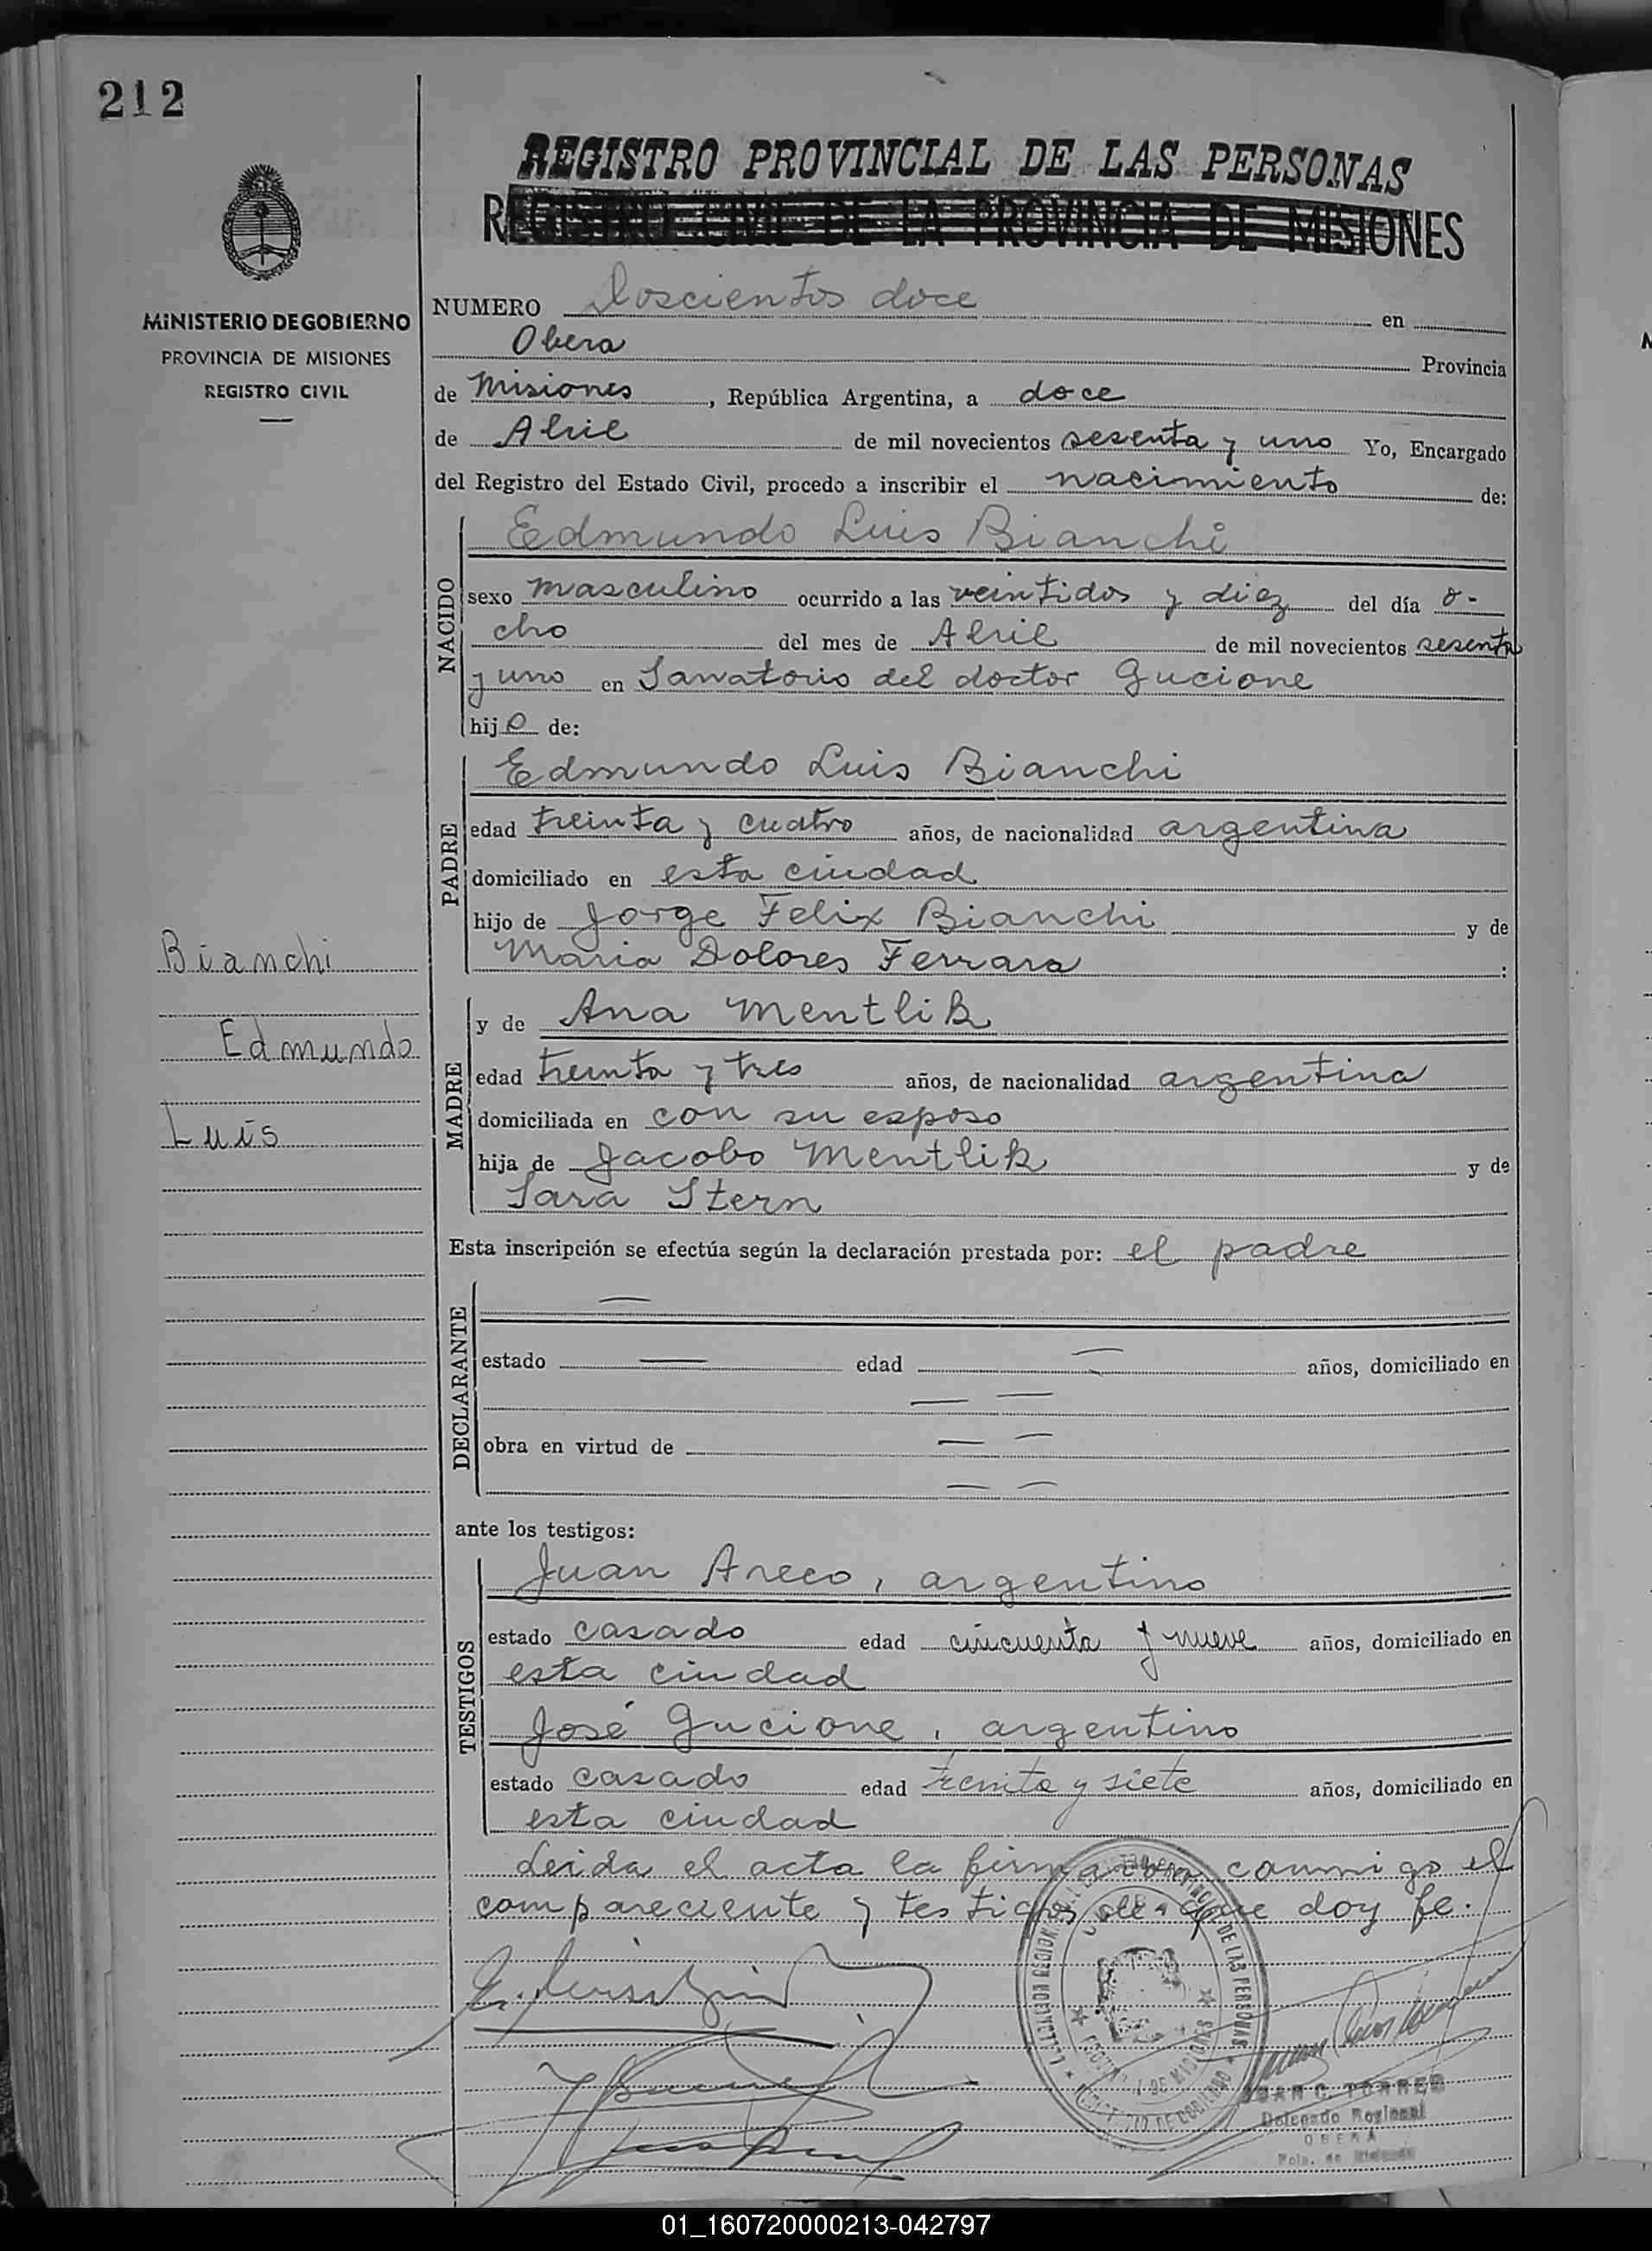 212
REGISTRO PROVINCIAL DE LAS PERSONAS
REGISTRO CIVIL DE LA PROVINCIA DE MISIONES
MINISTERIO DE GOBIERNO
PROVINCIA DE MISIONES
REGISTRO CIVIL
NUMERO Doscientos doce en
Obera Provincia
de Misiones, República Argentina, a doce
de Abril de mil novecientos sesenta y uno Yo, Encargado
del Registro del Estado Civil, procedo a inscribir el nacimiento de:
NACIDO
Edmundo Luis Bianchi
sexo masculino ocurrido a las veintidos y diez del día o-
cho del mes de Abril de mil novecientos sesenta
y uno en Sanatorio del doctor Gucione
hijo de:
PADRE
Edmundo Luis Bianchi
edad treinta y cuatro años, de nacionalidad argentina
domiciliado en esta ciudad
hijo de Jorge Felix Bianchi y de
Maria Dolores Ferrara :
Bianchi
Edmundo
Luis
MADRE
y de Ana Mentlik
edad treinta y tres años, de nacionalidad argentina
domiciliada en con su esposo
hija de Jacobo Mentlik y de
Sara Stern
Esta inscripción se efectúa según la declaración prestada por: el padre
DECLARANTE
—
estado — edad — años, domiciliado en
— —
obra en virtud de — —
— —
ante los testigos:
TESTIGOS
Juan Areco, argentino
estado casado edad cincuenta y nueve años, domiciliado en
esta ciudad
José Gucione, argentino
estado casado edad treinta y siete años, domiciliado en
esta ciudad
Leida el acta la firma con conmigo el
compareciente y testigos de que doy fe.
DE LAS PERSONAS
JUAN C. TORRES
Delegado Regional
OBERA
Pcia. de Misiones
01_160720000213-042797